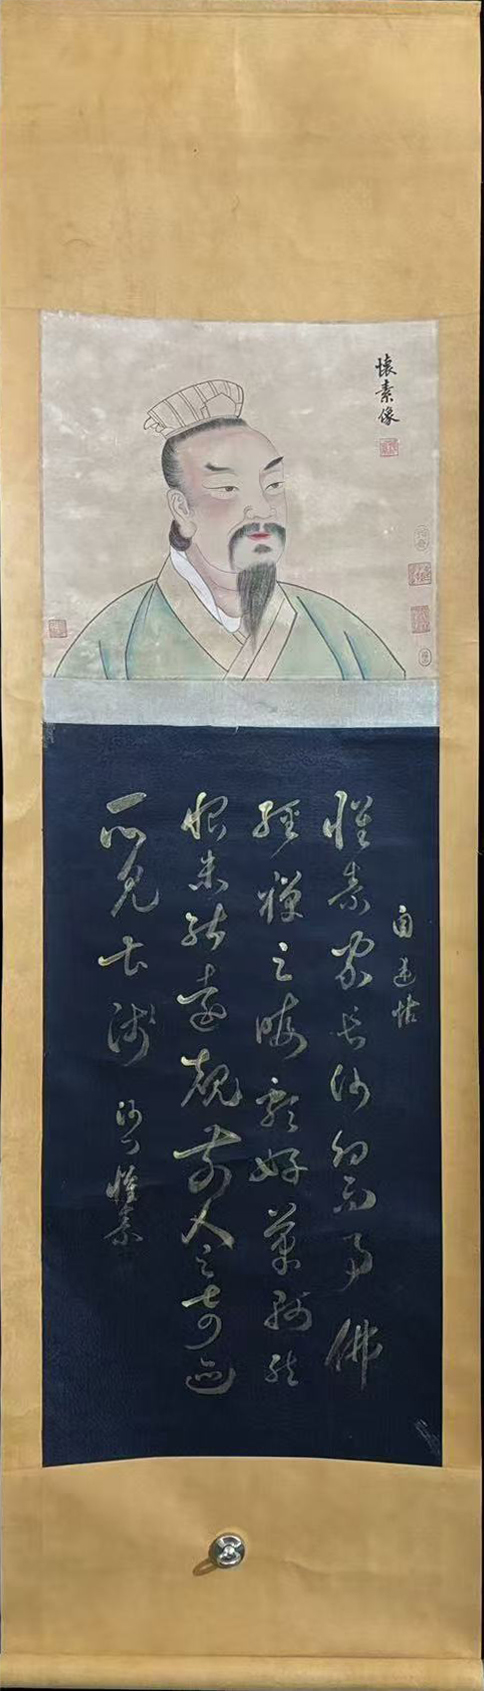 懷素像
自述帖
懷素家長沙幼而事佛
經禪之暇頗好筆翰然
恨未能遠覩前人之奇迹
所見甚淺
沙門懷素